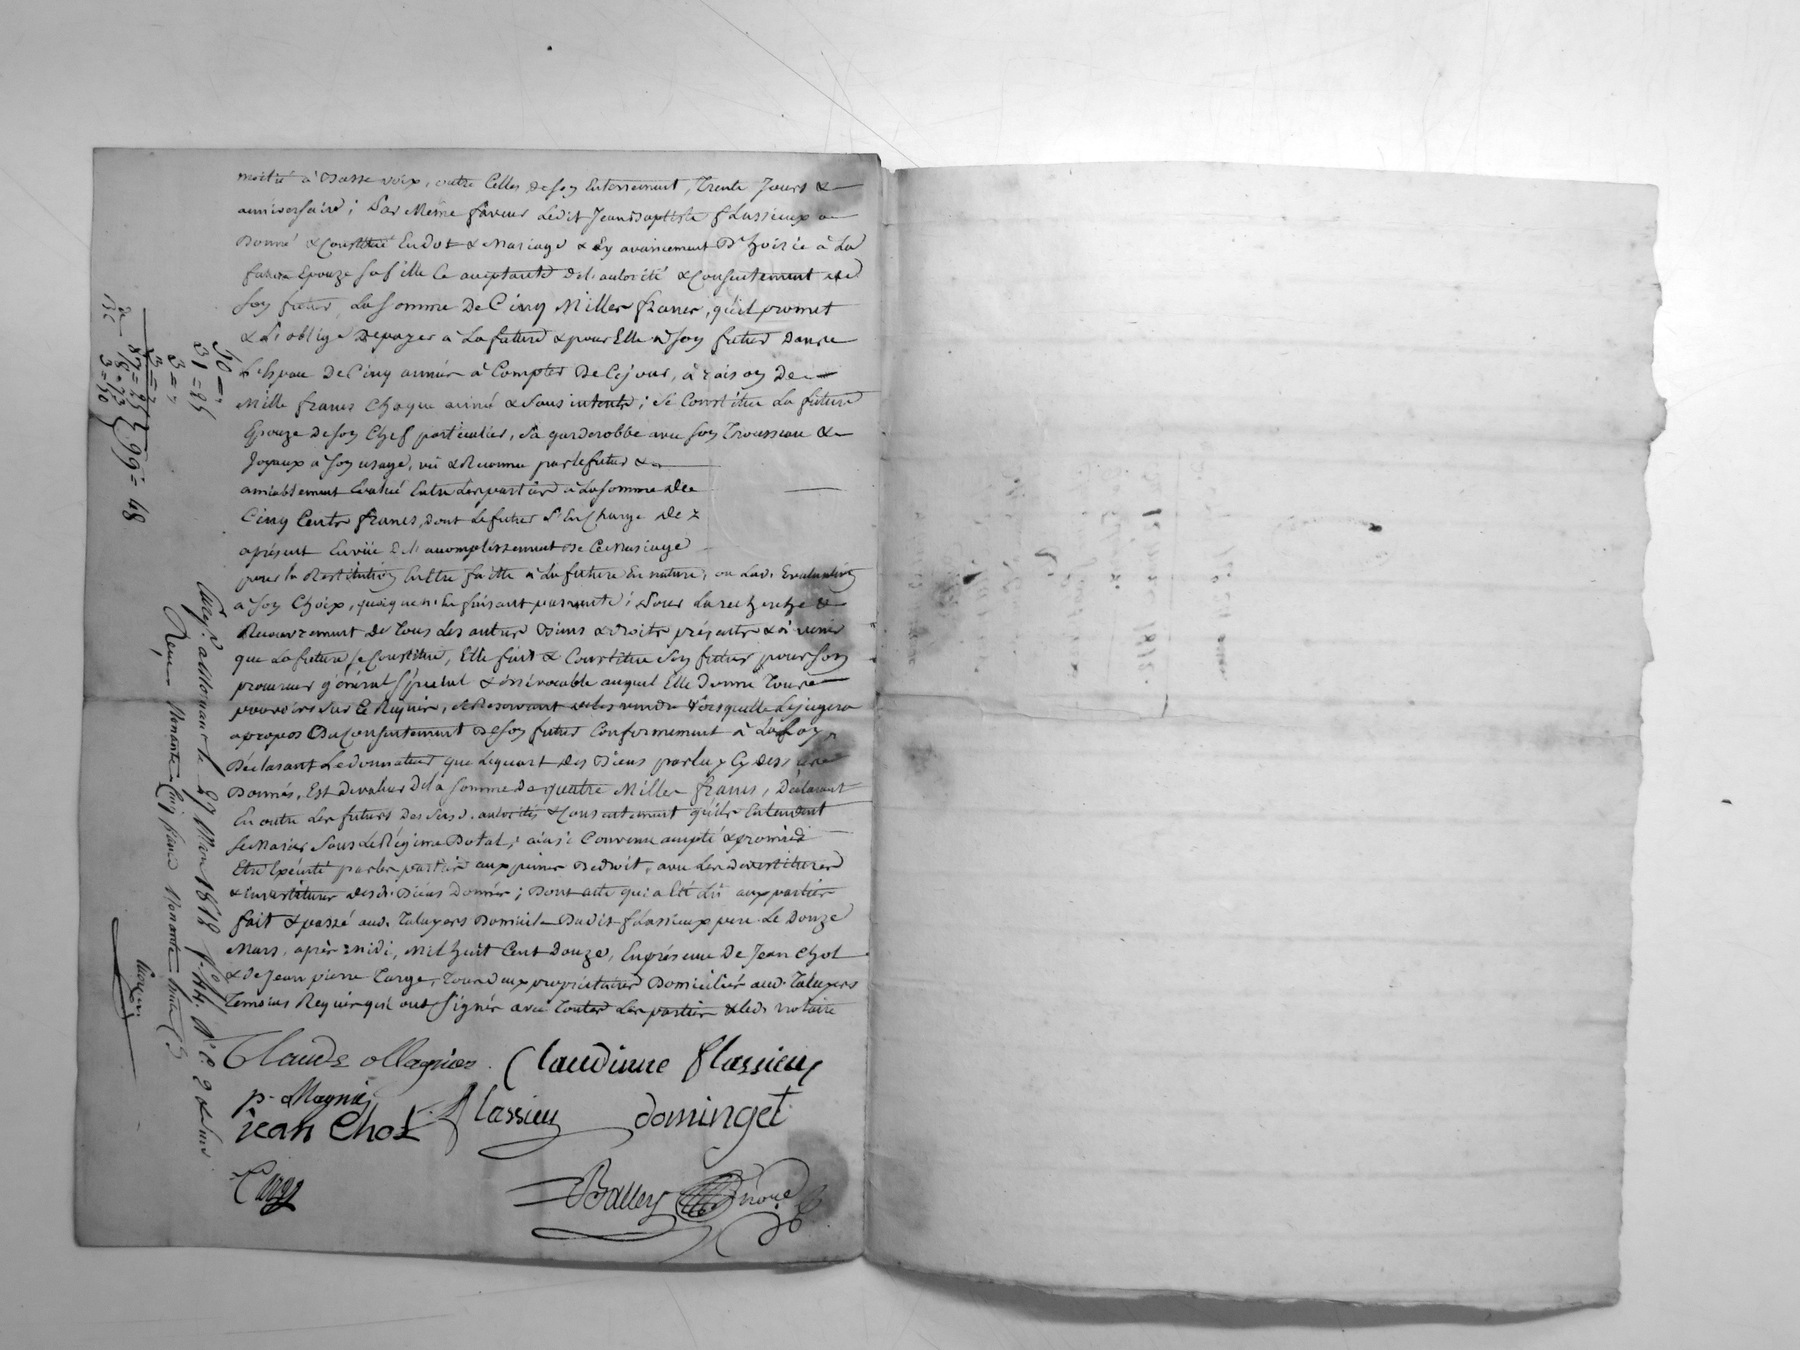 moitié à Basse voix, outre Celles de son Enterrement, Trente Jours &
anniversaire; Par Meme faveur Ledit Jean Baptiste flassieux a
Donné & Constitué En dot & Mariage & En avancement D'hoirie à La
future Epouze sa fille Ce acceptante de l'autorité & Consentement de
son futur, La somme De Cinq Miller francs, qu'il promet
& s'oblige De payer à La future & pour Elle à son futur Dans
L'Espace De Cinq années à Compter De Ce jour, à raison De
Mille francs Chaque année & sans interets; Se Constitue La future
Epouze De son Chef particulier, sa garderobbe avec son Trousseau &
Joyaux à son usage, vu & Reconnu par le futur &
amiablement Evalué Entre Les parties à La somme De
Cinq Cents francs, Dont Le futur s'En Charge De
apresent En vüe de l'accomplissement De Ce Mariage
pour la Restitution En Etre faitte à La future En nature, ou Lad. Evaluation
à son Choix, quoique n'en faisant pas vente; Pour La recherche &
Recouvrement De Tous Les autres Biens & droits présents & à venir
que La future se Constitue, Elle fait & Constitue son futur pour son
procureur général spécial & irrévocable auquel Elle Donne Tous
pouvoirs sur Ce Requis, se Reservant de les vendre Lorsqu'elle Le jugera
apropos Du Consentement De son futur Conformement à La Loy,
Déclarant Le donnateur que Le quart Des Biens par luy Cy dessus
Donnés, Est De valeur De la somme De quatre Miller francs, Déclarant
En outre Les futurs Des susd. autorités & Consentement qu'ils Entendent
se Marier sous Le Régime Dotal; ainsi Convenu accepté & promis
Etre Exécuté par les parties aux peines De droit, avec Les devestitures
& investitures desd. Biens Donnés; Dont acte qui a Eté Lu aux parties
fait & passé aud. Taluyers Domicile Dudit flassieux pere Le Douze
Mars, après midi, Mil huit Cent Douze, En présence De Jean Chol
& de Jean pierre Targe, Tous deux proprietaires Domiciliés aud. Taluyers
Temoins Requis qui ont signé avec Toutes Les parties & led. notaire
Claude Magnien. Claudinne flassieux
p. Magnien
flassieux dominget
jean Chol
Targe
Balley
50 =
31 = 25
3 =
3 =
87 = 25
18 = 23
3 = 10
99 = 48
Enreg. à Mornant le 27 Mars 1812
Reçu Nonante Cinq francs Nonante